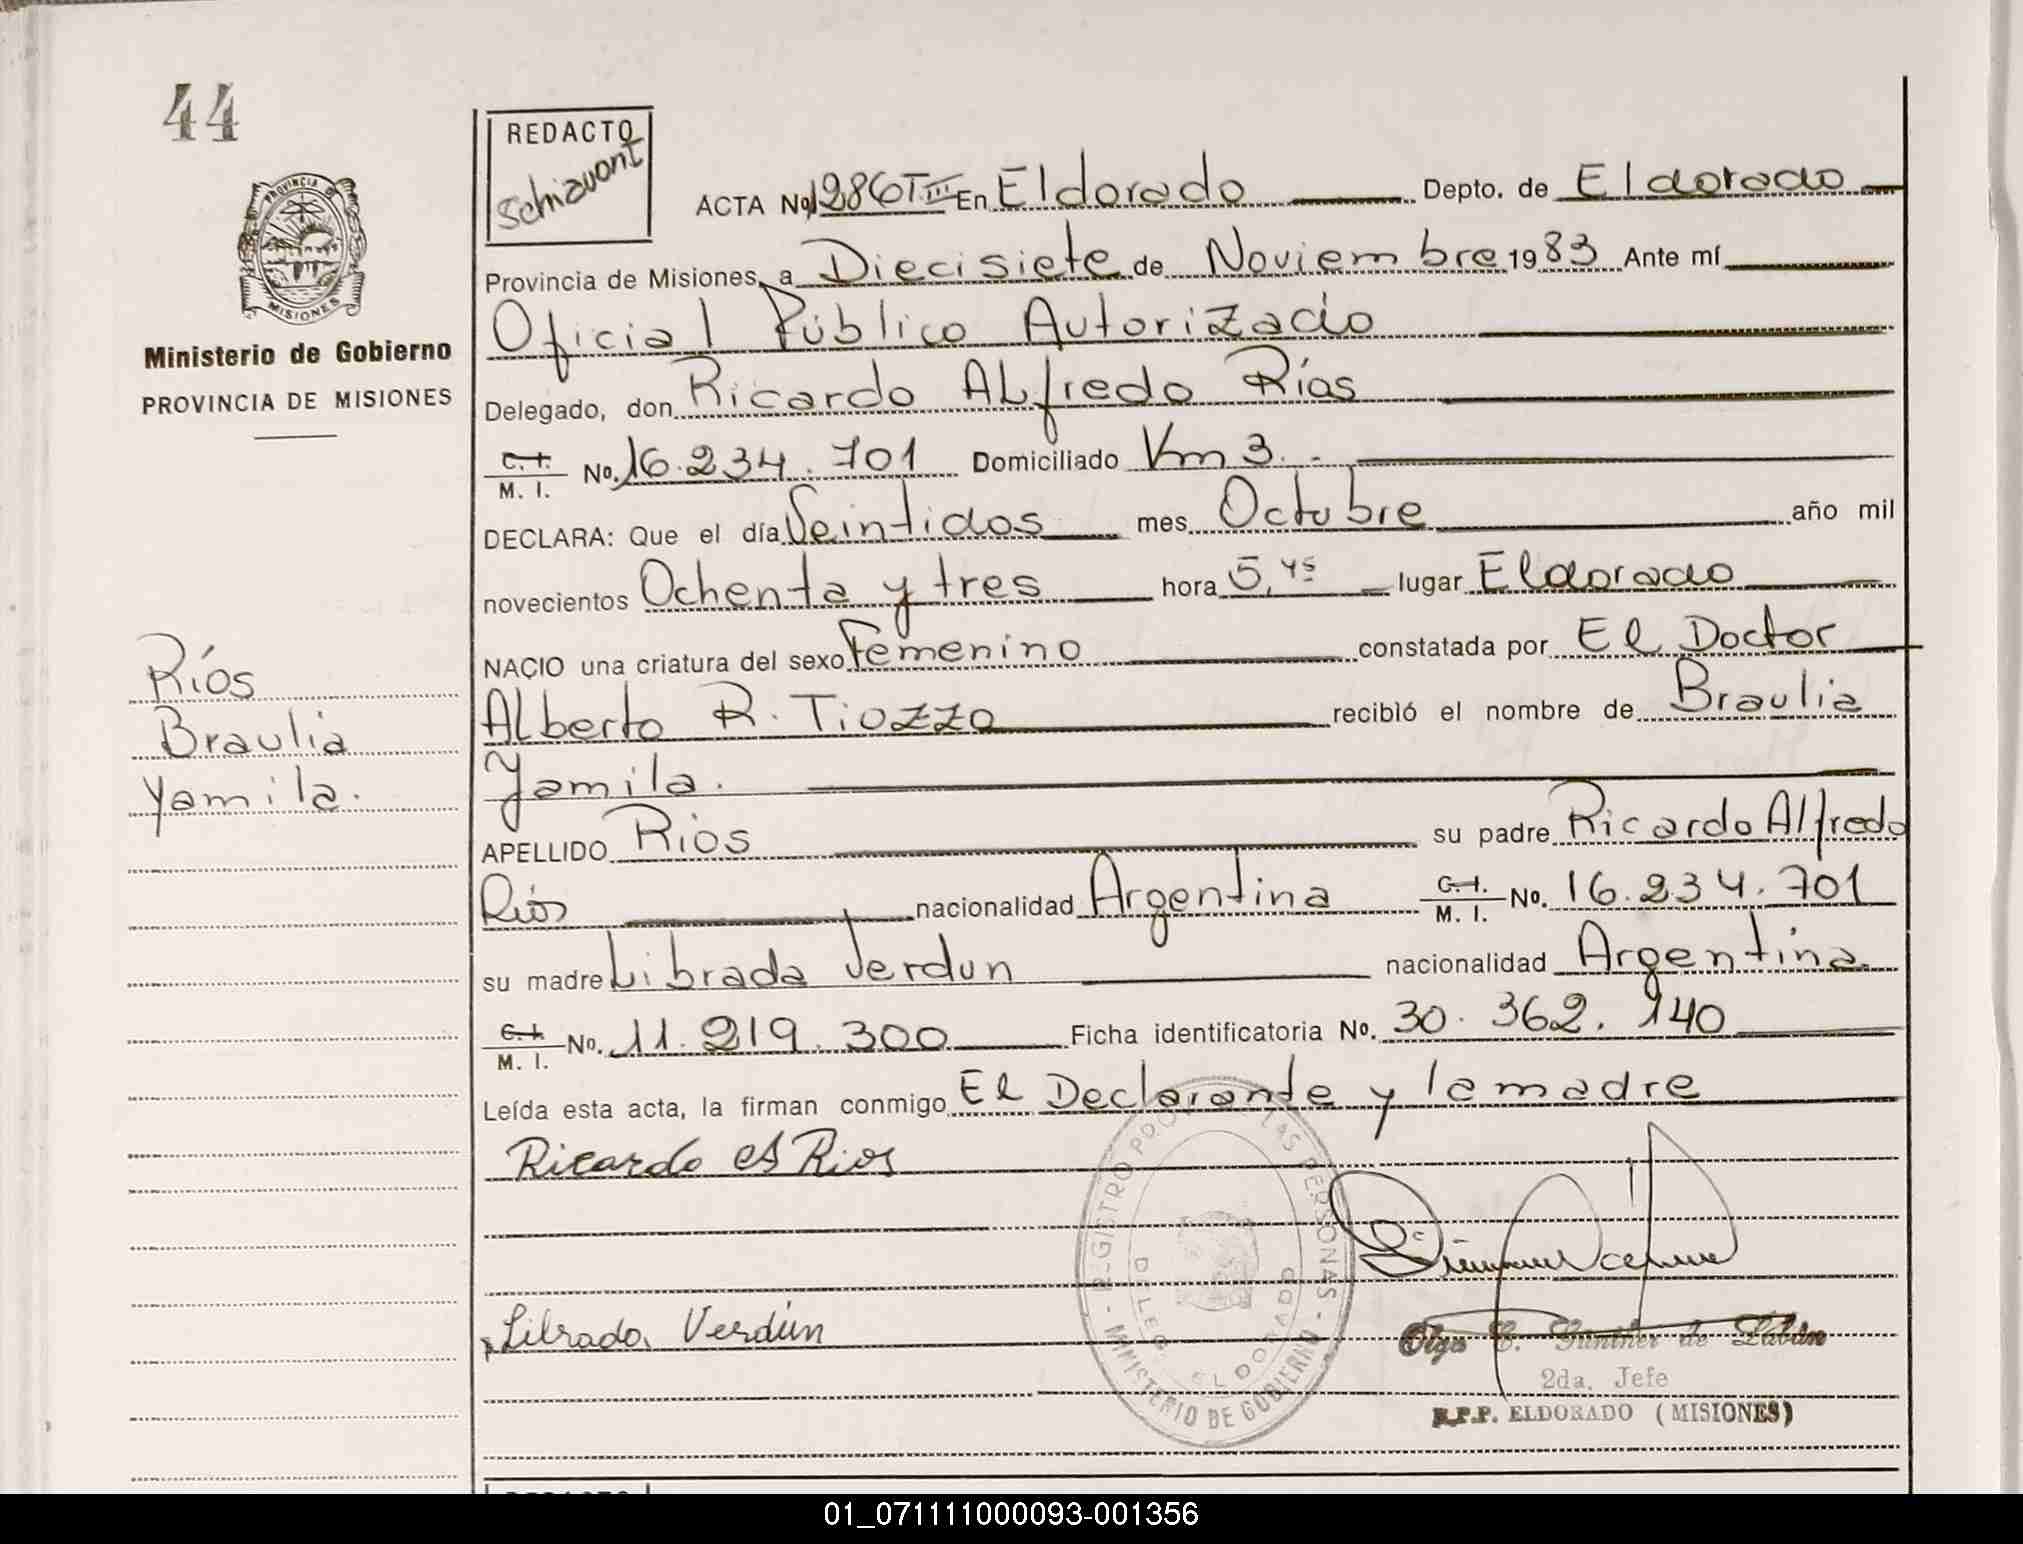 44
REDACTO
Schiavont
PROVINCIA DE
MISIONES
Ministerio de Gobierno
PROVINCIA DE MISIONES
ACTA No 1286 T III En Eldorado Depto. de Eldorado
Provincia de Misiones, a Diecisiete de Noviembre 1983 Ante mí
Oficial Público Autorizado
Delegado, don Ricardo Alfredo Ríos
C. I. M. I. No. 16.234.701 Domiciliado Km 3.-
DECLARA: Que el día Veintidos mes Octubre año mil
novecientos Ochenta y tres hora 5,45 lugar Eldorado
NACIO una criatura del sexo Femenino constatada por El Doctor
Alberto R. Tiozzo recibió el nombre de Braulia
Yamila.
APELLIDO Rios su padre Ricardo Alfredo
Ríos nacionalidad Argentina C. I. M. I. No. 16.234.701
su madre Librada Verdun nacionalidad Argentina.
C. I. M. I. No. 11.219.300 Ficha identificatoria No. 30.362.140
Leída esta acta, la firman conmigo El Declarante y la madre
Ricardo A Rios
Librada Verdún
Ríos
Braulia
Yamila.
REGISTRO LAS PERSONAS - MINISTERIO DE GOBIERNO
DELEG. ELDORADO
Olga C. Günther de Labán
2da. Jefe
R.P.P. ELDORADO (MISIONES)
01_071111000093-001356